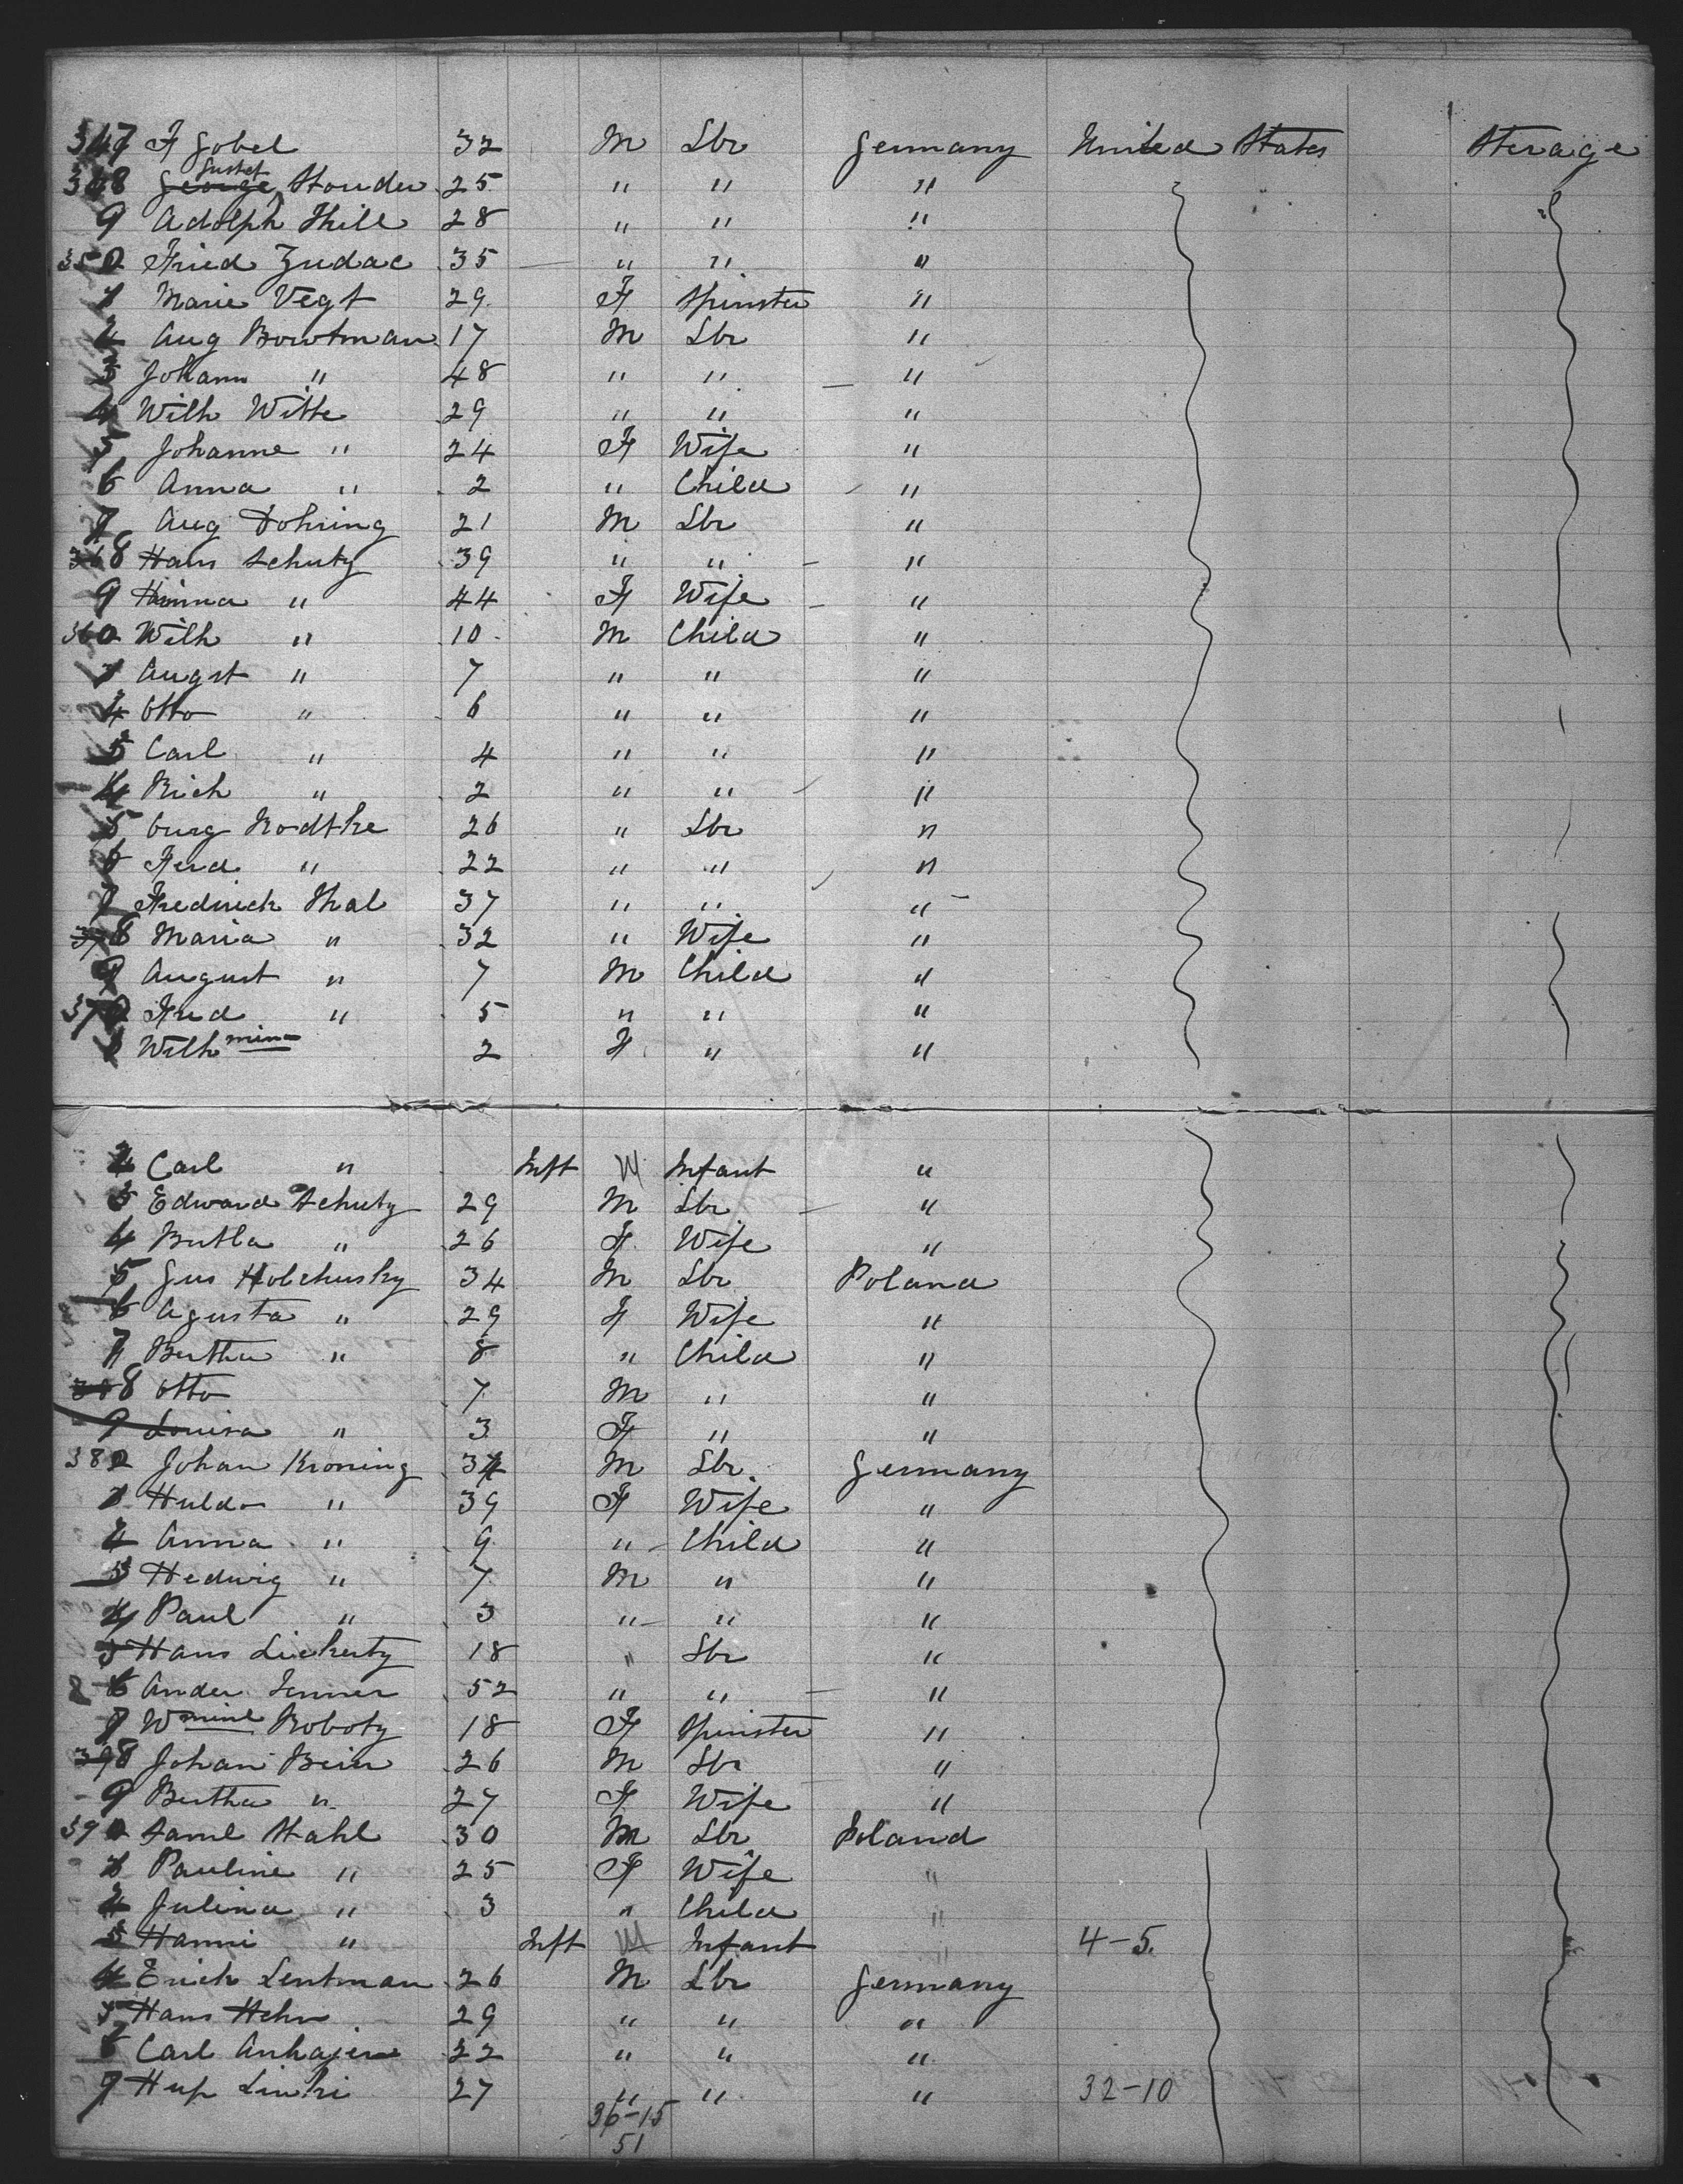 347 F Gobel 32 M Lbr Germany United States Sterage
348 George Gustaf Stouder 25 " " "
9 Adolph Thill 28 " " "
350 Fried Zudac 35 " " "
1 Marie Vegt 29 F Spinster "
2 Aug Bowtman 17 M Lbr "
3 Johann " 48 " " "
4 Wilh Witte 29 " " "
5 Johanne " 24 F Wife "
6 Anna " 2 " Child "
7 Aug Dohring 21 M Lbr "
368 Hans Schutz 39 " " "
9 Hanna " 44 F Wife "
360 Wilh " 10 M Child "
1 Augst " 7 " " "
2 Otto " 6 " " "
3 Carl " 4 " " "
4 Rich " 2 " " "
5 26 " Lbr "
6 Ferd " 22 " " "
7 Fredrick Thal 37 " " "
8 Maria " 32 " Wife "
9 August " 7 M Child "
370 Fred " 5 " " "
1 Wilhmine 2 F " "
2 Carl " Inft M Infant "
3 Edward Schutz 29 M Lbr "
4 Butha " 26 F Wife "
5 Gus Holchusky 34 M Lbr Poland
6 Agusta " 29 F Wife "
7 Bertha " 8 " Child "
8 Otto 7 M " "
9 Louisa " 3 F " "
380 Johan Kroning 34 M Lbr Germany
1 Hulda " 39 F Wife "
2 Anna " 9 " Child "
3 Hedwig " 7 M " "
4 Paul " 3 " " "
5 Hans Lickerty 18 " Lbr "
6 Ander Jenner 52 " " "
7 Wmine Roboty 18 F Spinster "
398 Johan Bein 26 M Lbr "
9 Bertha " 27 F Wife "
390 Saml Stahl 30 M Lbr Poland
1 Pauline " 25 F Wife "
2 Julina " 3 " Child "
3 Hanni " Inft M Infant " 4-5
4 Erich Lentman 26 M Lbr Germany
5 Hans Hehn 29 " " "
6 Carl 22 " " "
7 27 " " " 32-10
36-15
51